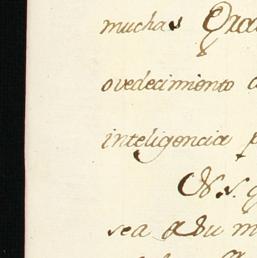 muchas Gra
ovedecimiento
inteligencia p
N. S. q
sea a su m